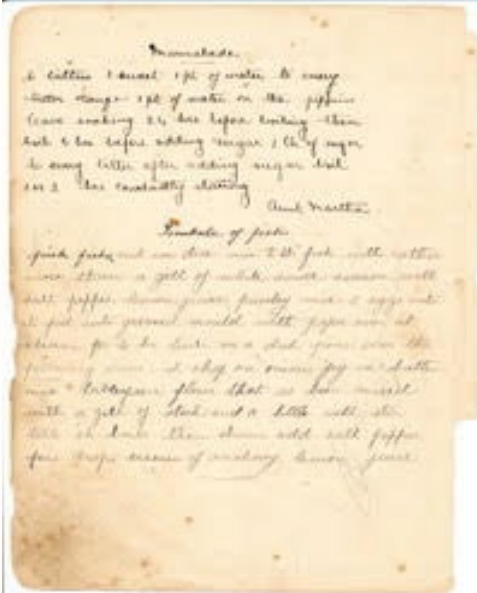 Marmalade
6 bitters 1 sweet 1 pt of water to every
bitter orange 1 pt of water on the pippins
leave soaking 24 hrs before boiling then
boil 6 hrs before adding sugar 1 lb of sugar
to every bitter after adding sugar boil
1 or 2 hrs constantly stirring
Aunt Martha
Timbale of fish
fish and
a gill of white sauce season with
salt pepper lemon juice parsley 2 eggs
it put into greased mould with paper over it
steam for ½ hr on a dish pour over the
following chop an onion fry in butter
tablespoon flour that has been mixed
with a gill of stock and a little milk stir
till it boils then add salt pepper
few drops essence of anchovy lemon juice